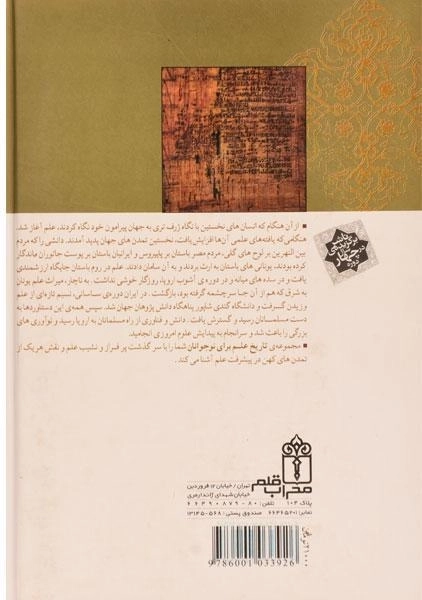 • از آن هنگام که انسان های نخستین با نگاه ژرف تری به جهان پیرامون خود نگاه کردند، علم آغاز شد.
هنگامی که یافته های علمی آن ها افزایش یافت، نخستین تمدن های جهان پدید آمدند. دانشی را که مردم
بین النهرین بر لوح های گلی، مردم مصر باستان بر پاپیروس و ایرانیان باستان بر پوست جانوران ماندگار
کرده بودند، یونانی های باستان به ارث بردند و به آن سامان دادند. علم در روم باستان جایگاه ارزشمندی
یافت و در سده های میانه و در دوره ی آشوب اروپا، روزگار خوشی نداشت. به ناچار، میراث علم یونان
به شرق که هم از آن جا سرچشمه گرفته بود، بازگشت. در ایران دوره ی ساسانی، نسیم تازه ای از علم
وزیدن گرفت و دانشگاه گندی شاپور پناهگاه دانش پژوهان جهان شد. سپس همه ی این دستاوردها به
دست مسلمانان رسید و گسترش یافت. دانش و فناوری از راه مسلمانان به اروپا رسید و نوآوری های
بزرگی را باعث شد و سرانجام به پیدایش علوم امروزی انجامید.
• مجموعه ی تاریخ علم برای نوجوانان شما را با سرگذشت پر فراز و نشیب علم و نقش هریک از
تمدن های کهن در پیشرفت علم آشنا می کند.
محراب قلم
تهران / خیابان ۱۲ فروردین
خیابان شهدای ژاندارمری
پلاک ۱۰۴ تلفن: ۸۰-۶۶۴۹۰۸۷۹
نمابر: ۶۶۴۶۵۲۰۱ صندوق پستی: ۵۶۸-۱۳۱۴۵
9786001033926